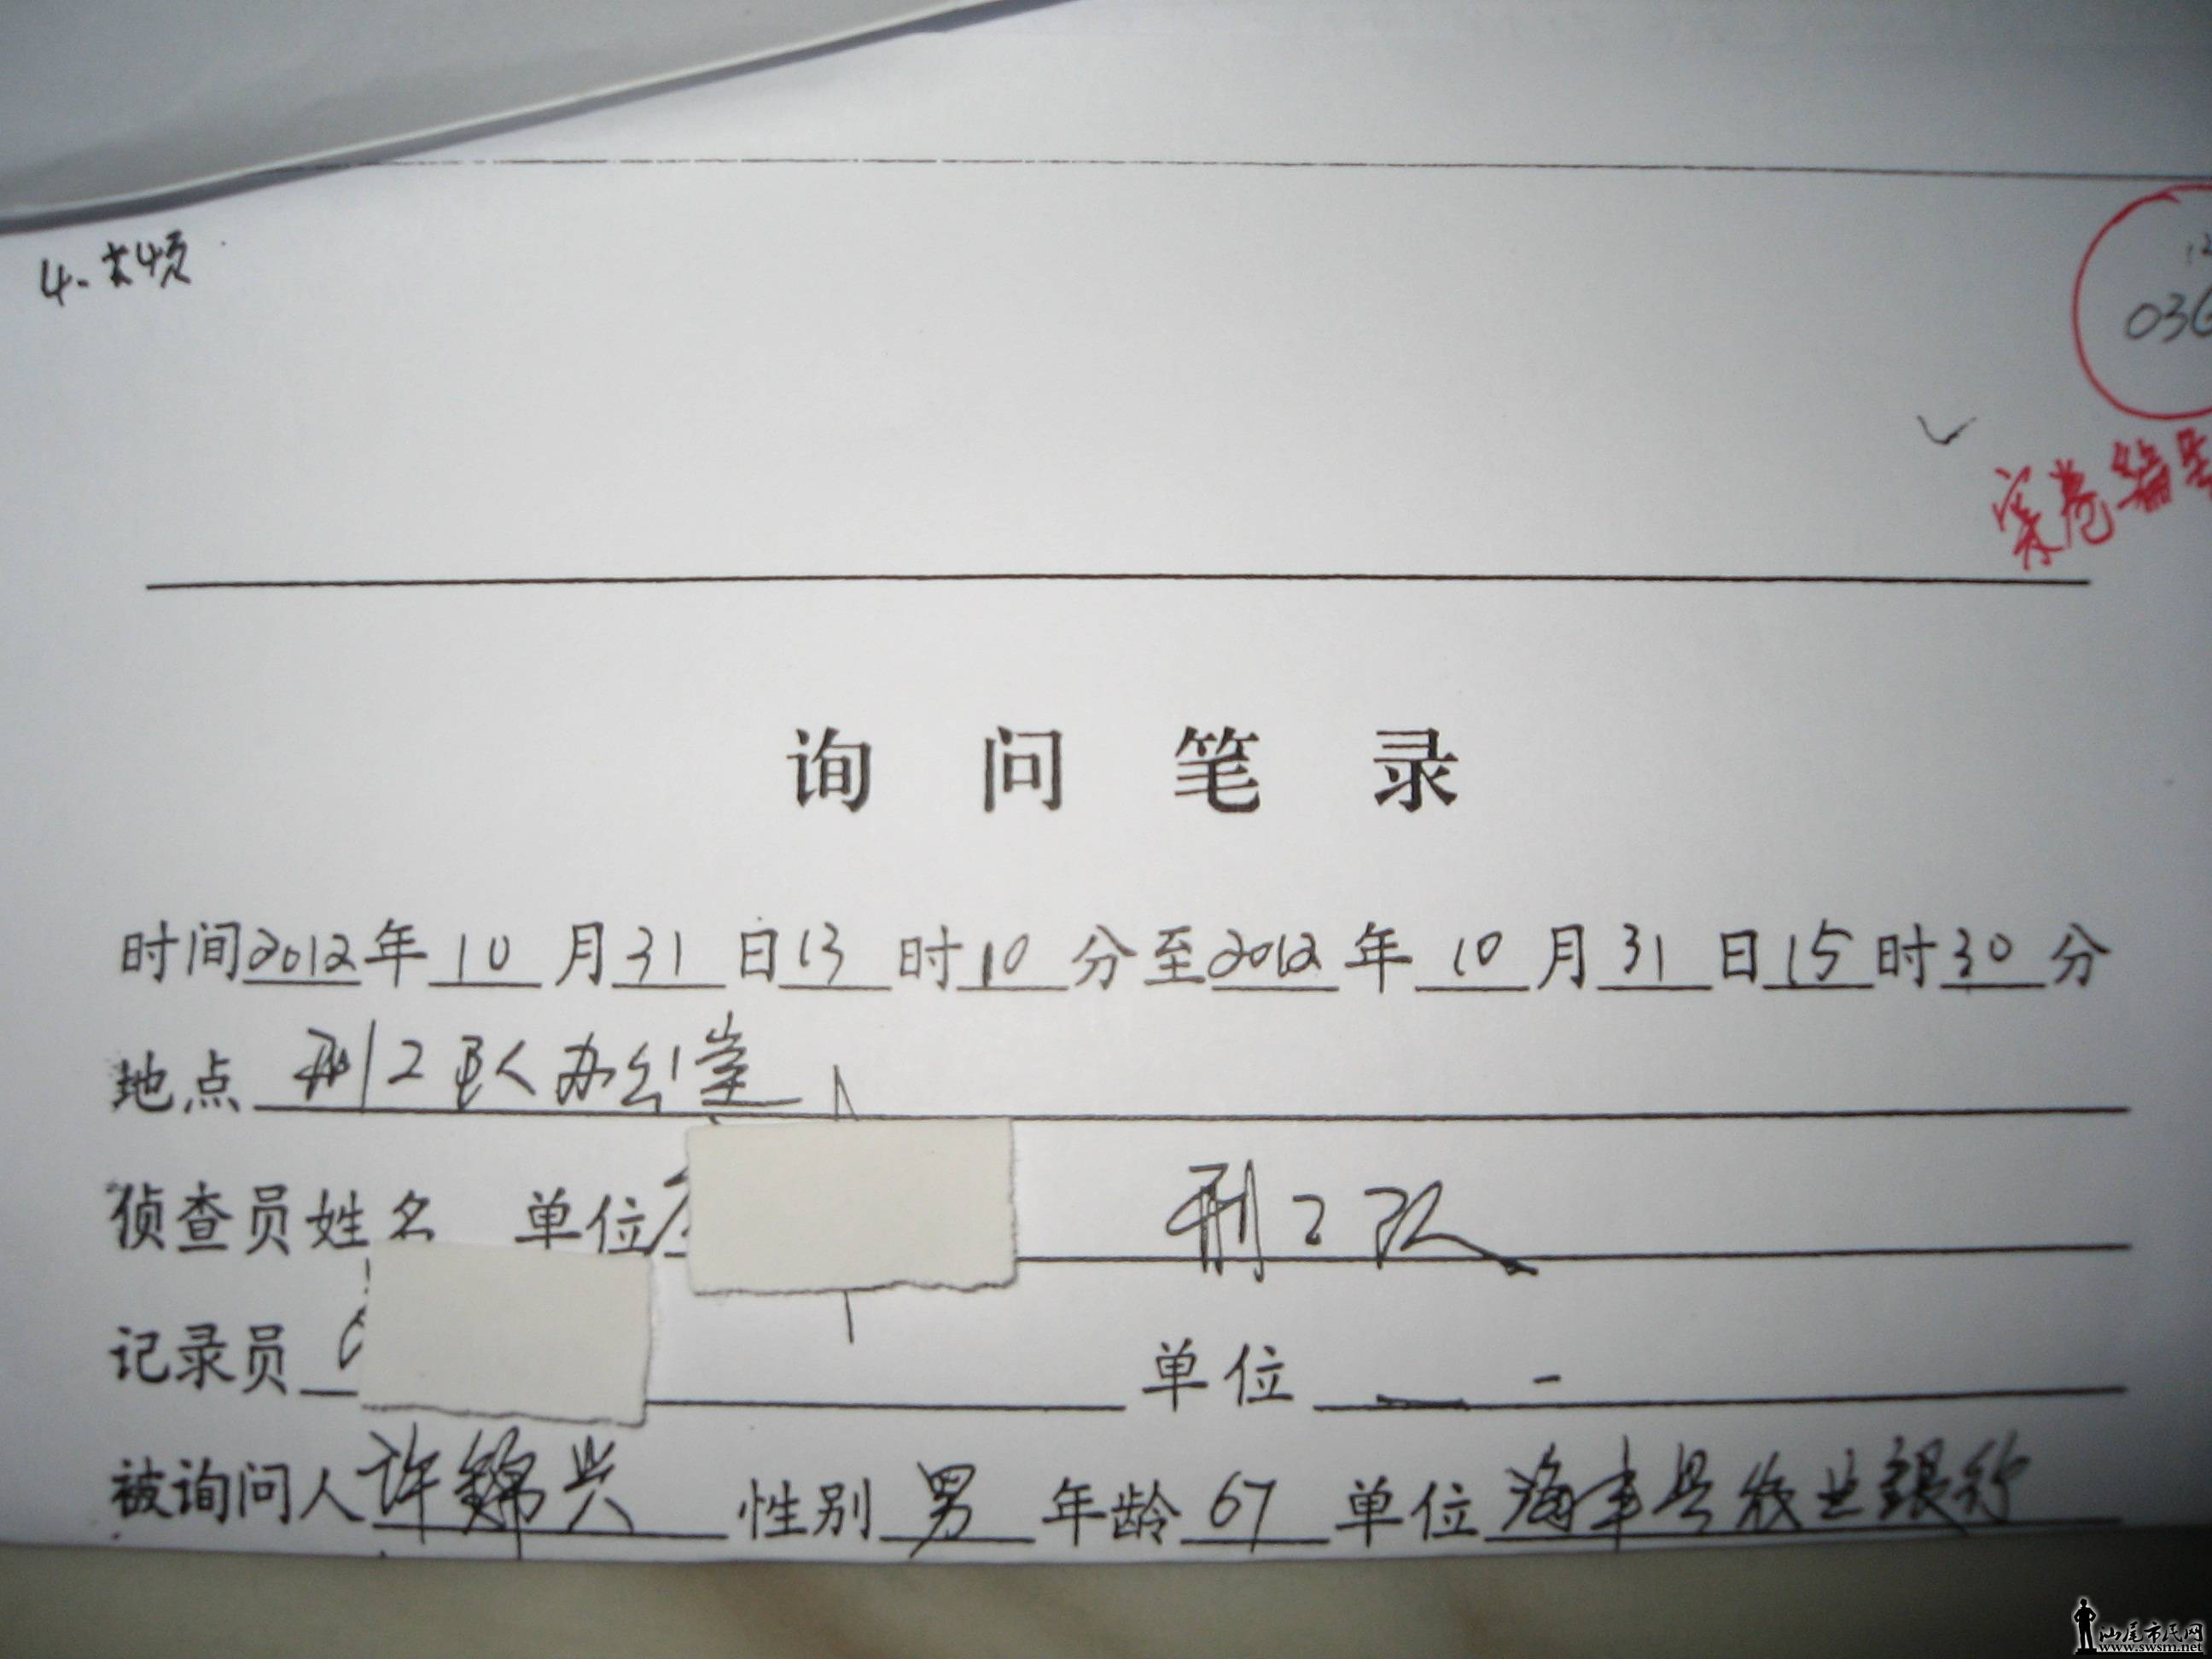 4. 共4页
036
案卷编号
询问笔录
时间2012年10月31日13时10分至2012年10月31日15时30分
地点 刑2队办公室
侦查员姓名 单位 刑2队
记录员 单位
被询问人许锦兴 性别 男 年龄 67 单位海丰县农业银行
汕尾市民网
www.swsm.net